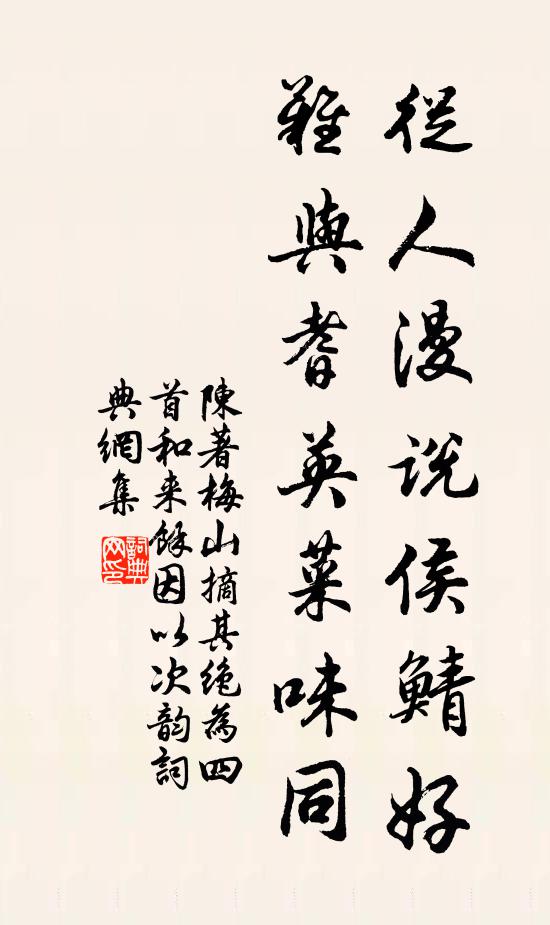 從人漫说侯鯖好
難與耆英菜味同
陳著梅山摘其绝為四
首和来餘因以次韵詞
典網集
詞典網印